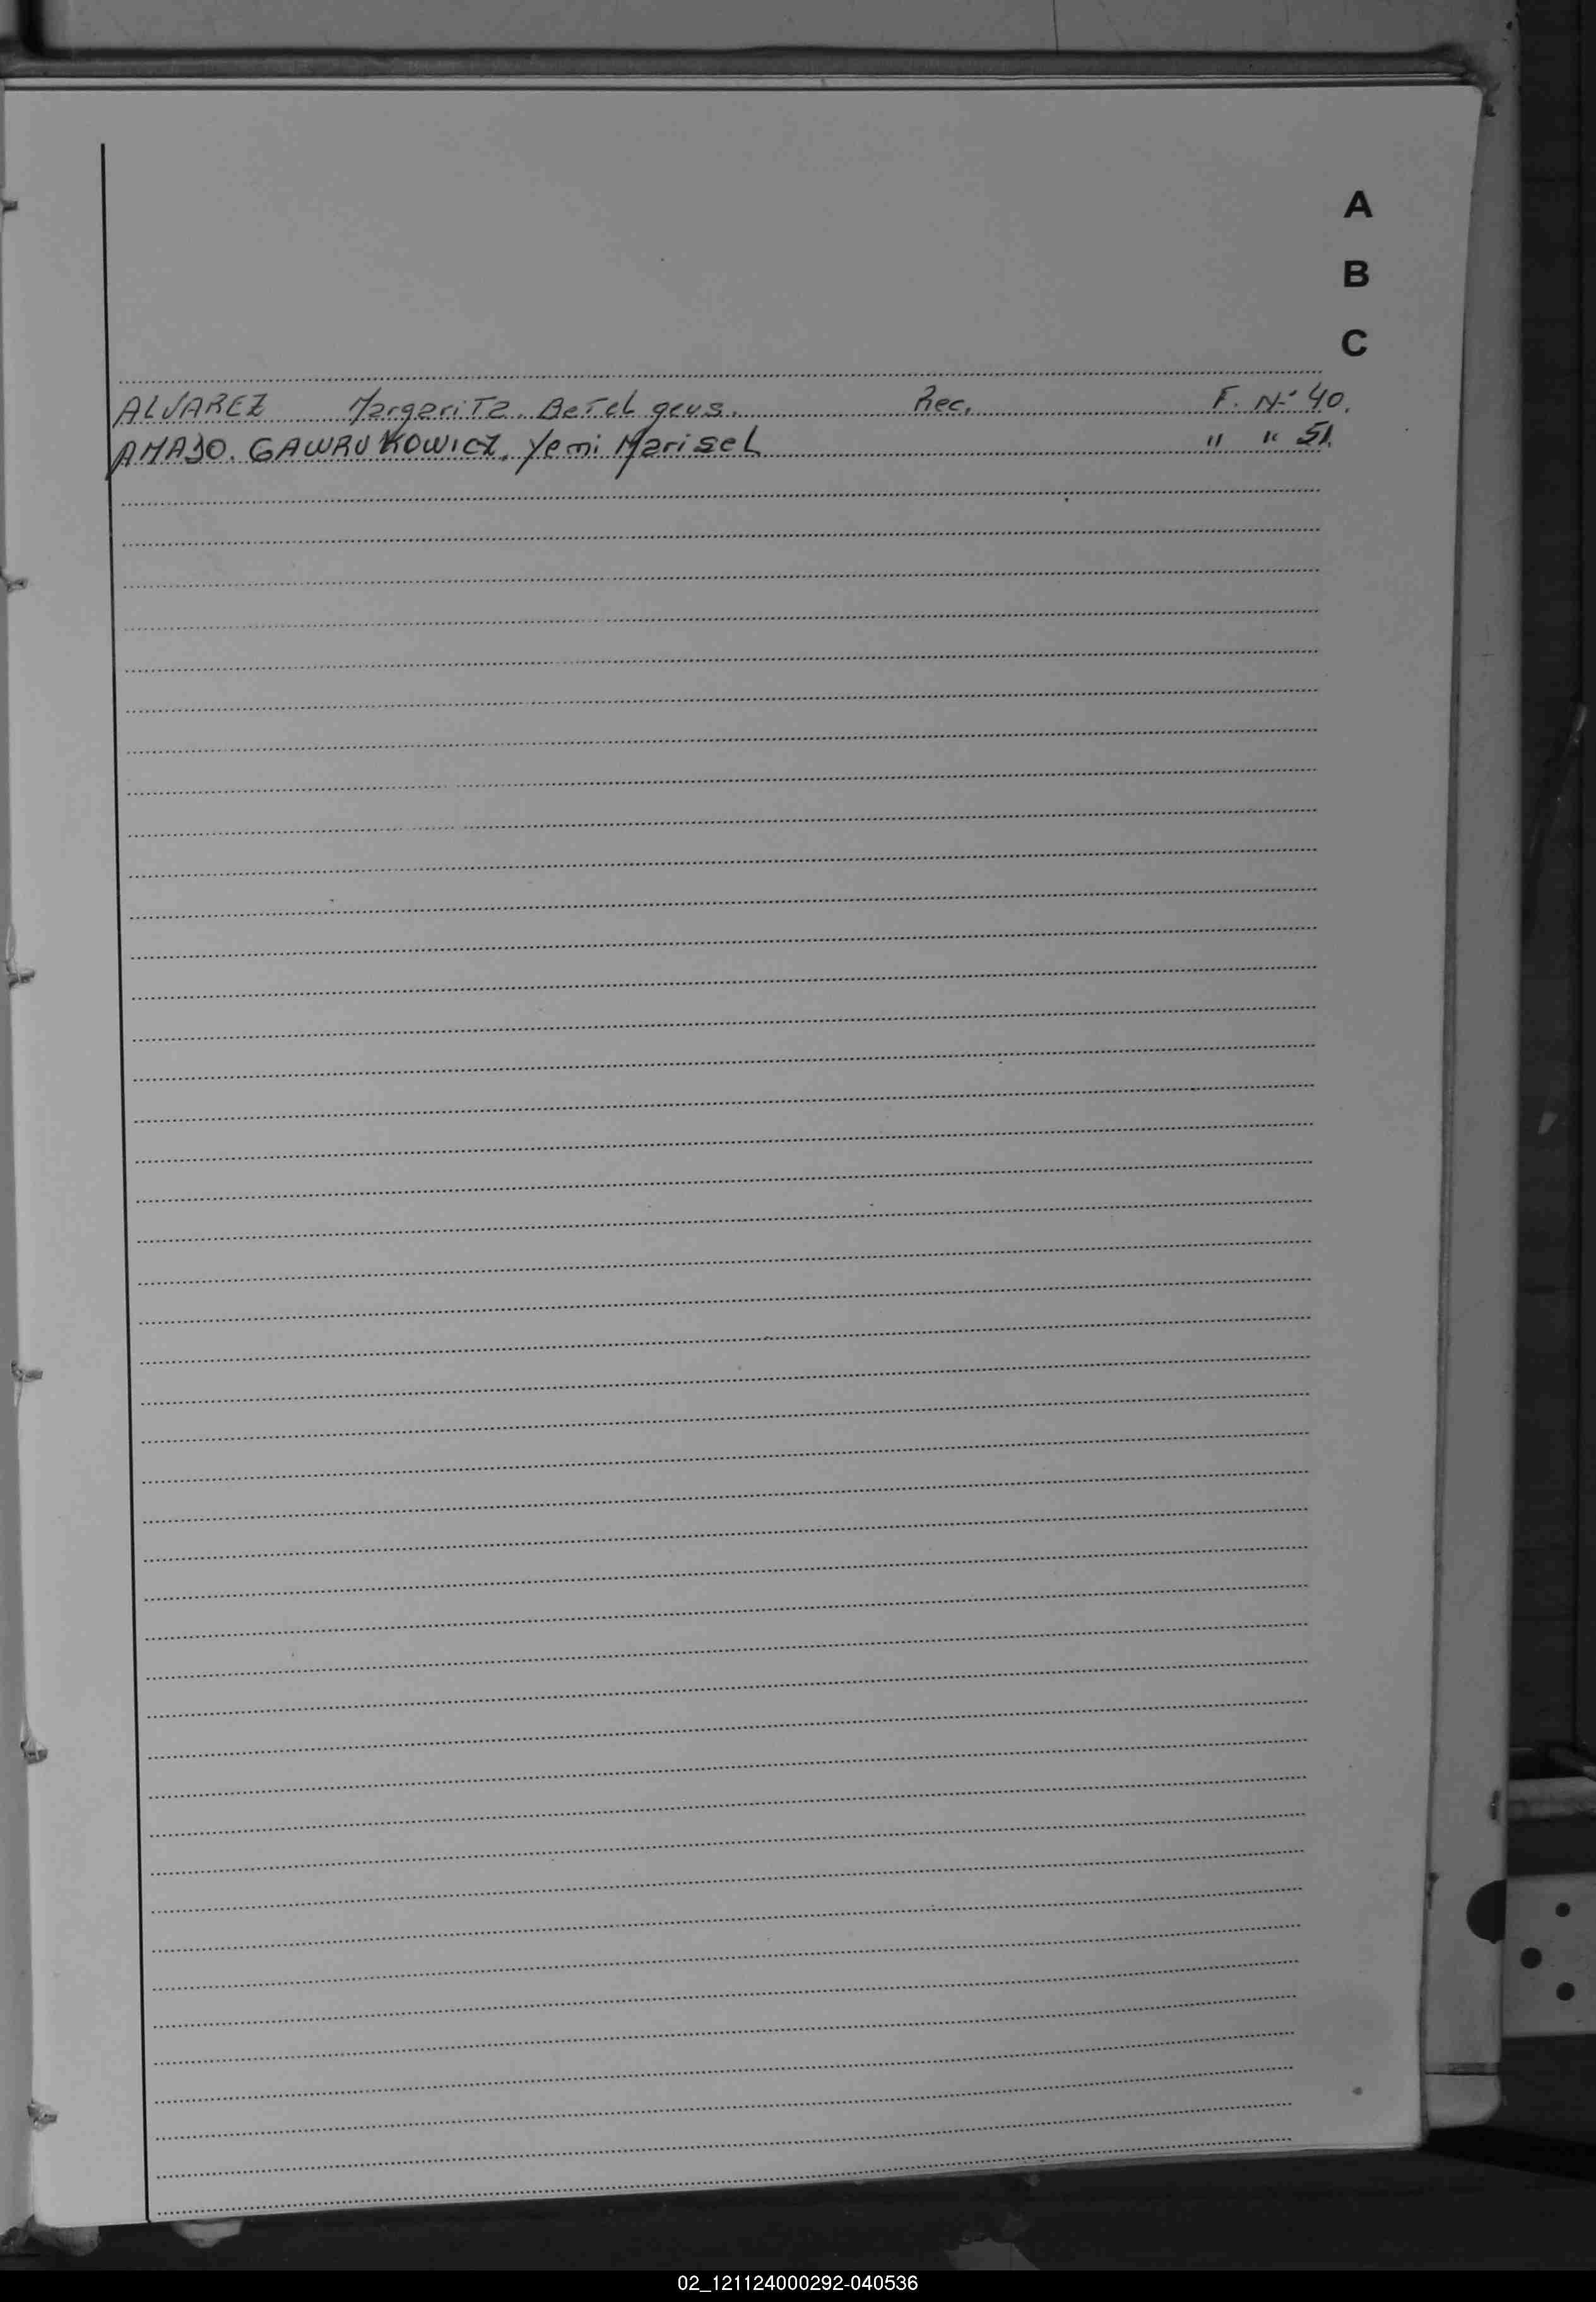 A
B
C
ALVAREZ Margarita. Betel geus. Rec. F. Nº 40.
AMAJO. GAWRUKOWICZ. Yemi Marisel " " 51.
02_121124000292-040536